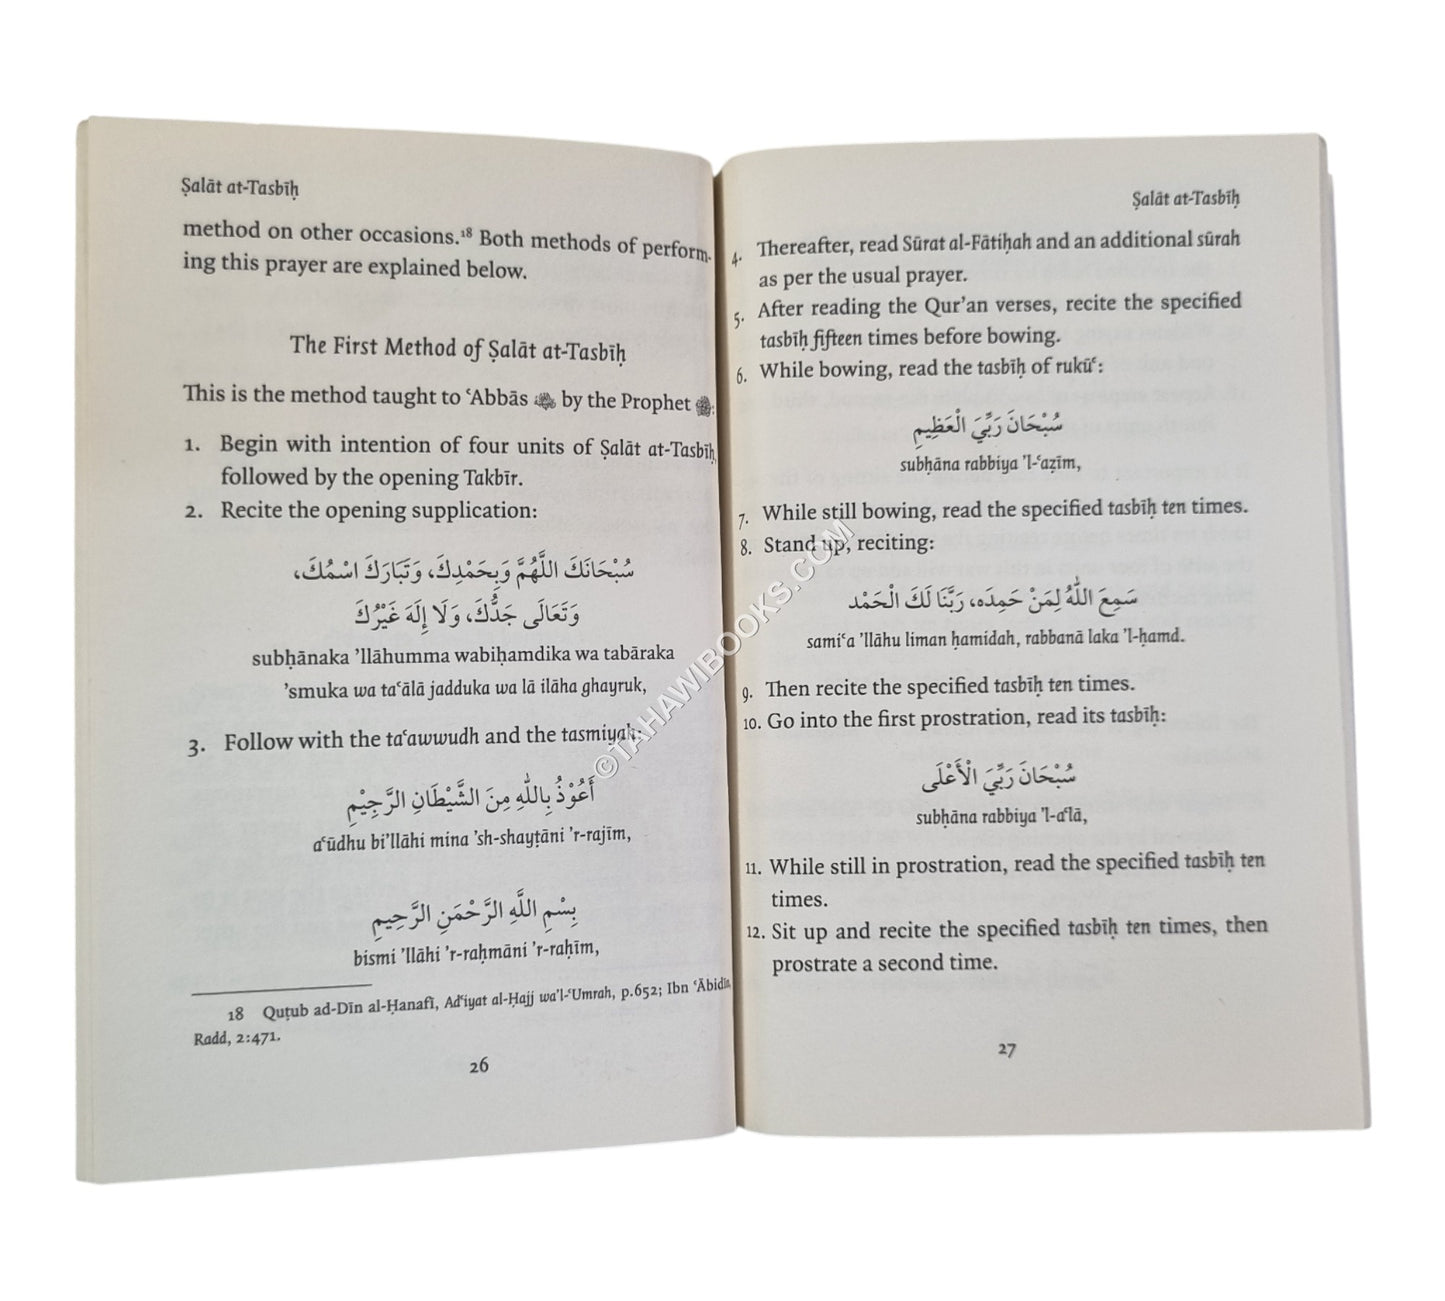 Ṣalāt at-Tasbīḥ
method on other occasions.¹⁸ Both methods of perform-
ing this prayer are explained below.
The First Method of Ṣalāt at-Tasbīḥ
This is the method taught to ʿAbbās by the Prophet ﷺ:
1. Begin with intention of four units of Ṣalāt at-Tasbīḥ,
followed by the opening Takbīr.
2. Recite the opening supplication:
سُبْحَانَكَ اللَّهُمَّ وَبِحَمْدِكَ، وَتَبَارَكَ اسْمُكَ،
وَتَعَالَى جَدُّكَ، وَلَا إِلَهَ غَيْرُكَ
subḥānaka ’llāhumma wabiḥamdika wa tabāraka
’smuka wa taʿālā jadduka wa lā ilāha ghayruk,
3. Follow with the taʿawwudh and the tasmiyah:
أَعُوْذُ بِاللهِ مِنَ الشَّيْطَانِ الرَّجِيْمِ
aʿūdhu bi’llāhi mina ’sh-shayṭāni ’r-rajīm,
بِسْمِ اللَّهِ الرَّحْمَنِ الرَّحِيمِ
bismi ’llāhi ’r-raḥmāni ’r-raḥīm,
18 Quṭub ad-Dīn al-Ḥanafī, Adʿiyat al-Ḥajj wa’l-ʿUmrah, p.652; Ibn ʿĀbidīn,
Radd, 2:471.
26
Ṣalāt at-Tasbīḥ
4. Thereafter, read Sūrat al-Fātiḥah and an additional sūrah
as per the usual prayer.
5. After reading the Qur’an verses, recite the specified
tasbīḥ fifteen times before bowing.
6. While bowing, read the tasbīḥ of rukūʿ:
سُبْحَانَ رَبِّيَ الْعَظِيمِ
subḥāna rabbiya ’l-ʿaẓīm,
7. While still bowing, read the specified tasbīḥ ten times.
8. Stand up, reciting:
سَمِعَ اللهُ لِمَنْ حَمِدَه، رَبَّنَا لَكَ الْحَمْد
samiʿa ’llāhu liman ḥamidah, rabbanā laka ’l-ḥamd.
9. Then recite the specified tasbīḥ ten times.
10. Go into the first prostration, read its tasbīḥ:
سُبْحَانَ رَبِّيَ الْأَعْلَى
subḥāna rabbiya ’l-aʿlā,
11. While still in prostration, read the specified tasbīḥ ten
times.
12. Sit up and recite the specified tasbīḥ ten times, then
prostrate a second time.
27
©TAHAWIBOOKS.COM